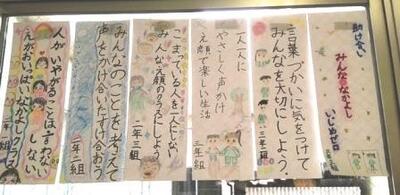 助け合い
みんななかよし
いじめゼロ
言葉づかいに気をつけて
みんなを大切にしよう。
二年三組
一人一人に
やさしく声かけ
え顔で楽しい生活
三年一組
こまっている人を一人にしない
みんなえ顔のクラスにしよう
二年三組
みんなのことを考えて
声をかけ合いたすけ合おう
二年二組
人がいやがることは言わない
しない
えがおいっぱいなかよしクラス
二年一組